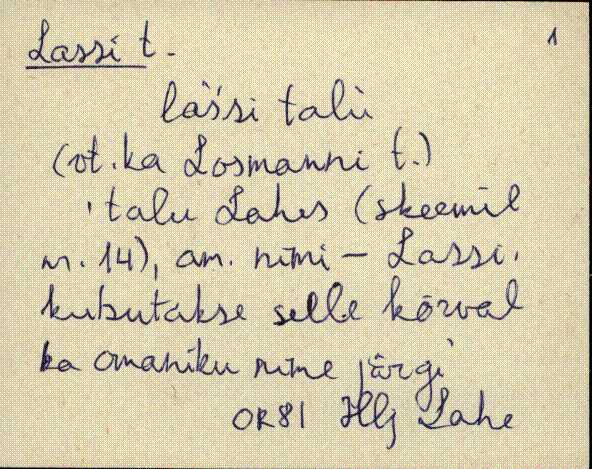 Lassi t. 1
las's'i talù
(vt. ka Losmanni t.)
'talu Lahes (skeemil
nr. 14), am. nimi – Lassi,
kutsutakse selle kõrval
ka omaniku nime järgi
OR81 Hlj Lahe